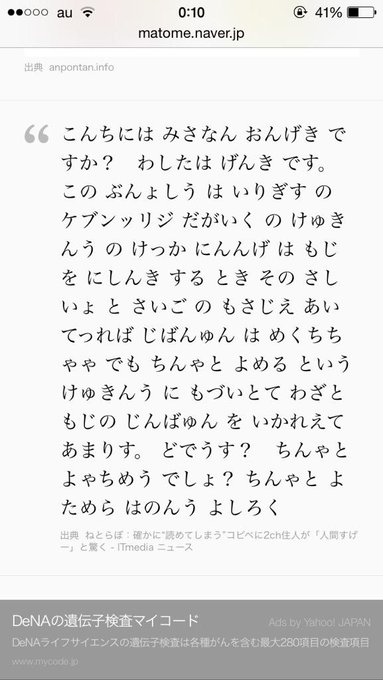 au 0:10 41%
matome.naver.jp
出典 anpontan.info
こんちには みさなん おんげき で
すか？ わしたは げんき です。
この ぶんょしう は いりぎす の
ケブンッリジ だがいく の けゅき
んう の けっか にんんげ は もじ
を にしんき する とき その さし
いょ と さいご の もさじえ あい
てっれば じばんゅん は めくちち
ゃゃ でも ちんゃと よめる という
けゅきんう に もづいとて わざと
もじの じんばゅん を いかれえて
あまりす。 どでうす？ ちんゃと
よゃちめう でしょ？ ちんゃと よ
ためら はのんう よしろく
出典 ねとらぼ：確かに“読めてしまう”コピペに2ch住人が「人間すげ
ー」と驚く - ITmedia ニュース
DeNAの遺伝子検査マイコード Ads by Yahoo! JAPAN
DeNAライフサイエンスの遺伝子検査は各種がんを含む最大280項目の検査項目
www.mycode.jp